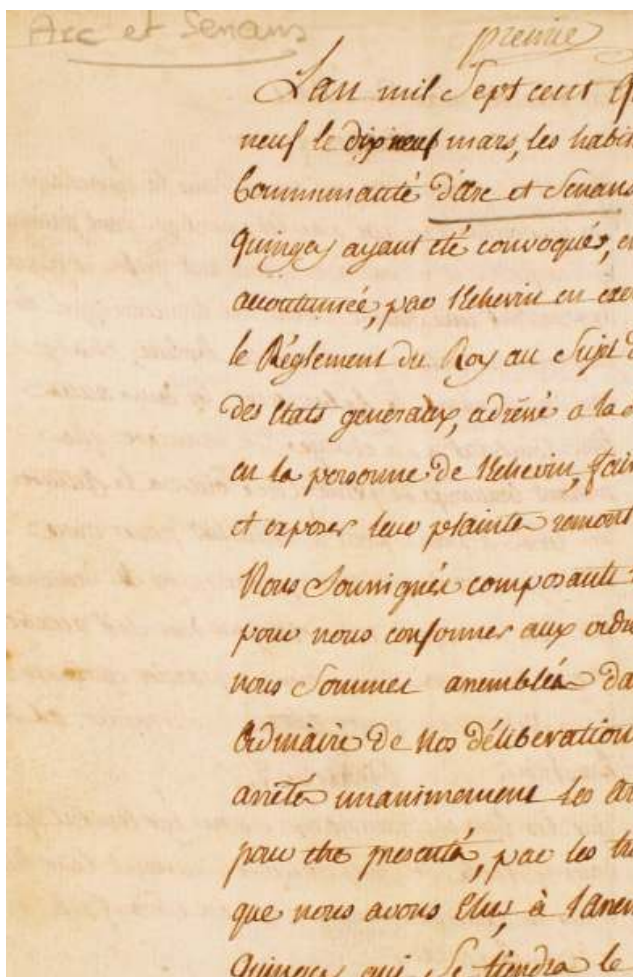 Arc et Senans
premie
Lan mil Sept cent q
neuf le dixneuf mars, les habi
Communauté d'arc et Senans
Quingey ayant été convoqués, e
accoutumée, par
le Réglement du Roy au Sujet d
des Etats generaux, adréné a la
en la personne de fai
et exposer leur plainte remont
Nous Sousignés composants
pour nous conformer aux ordr
nous Sommes anemblés da
Ordinaire de Nos déliberation
arrêté unanimement les ar
pour être presenté, par les
que nous avons Elus, à l'anem
Quingey qui Se tiendra le